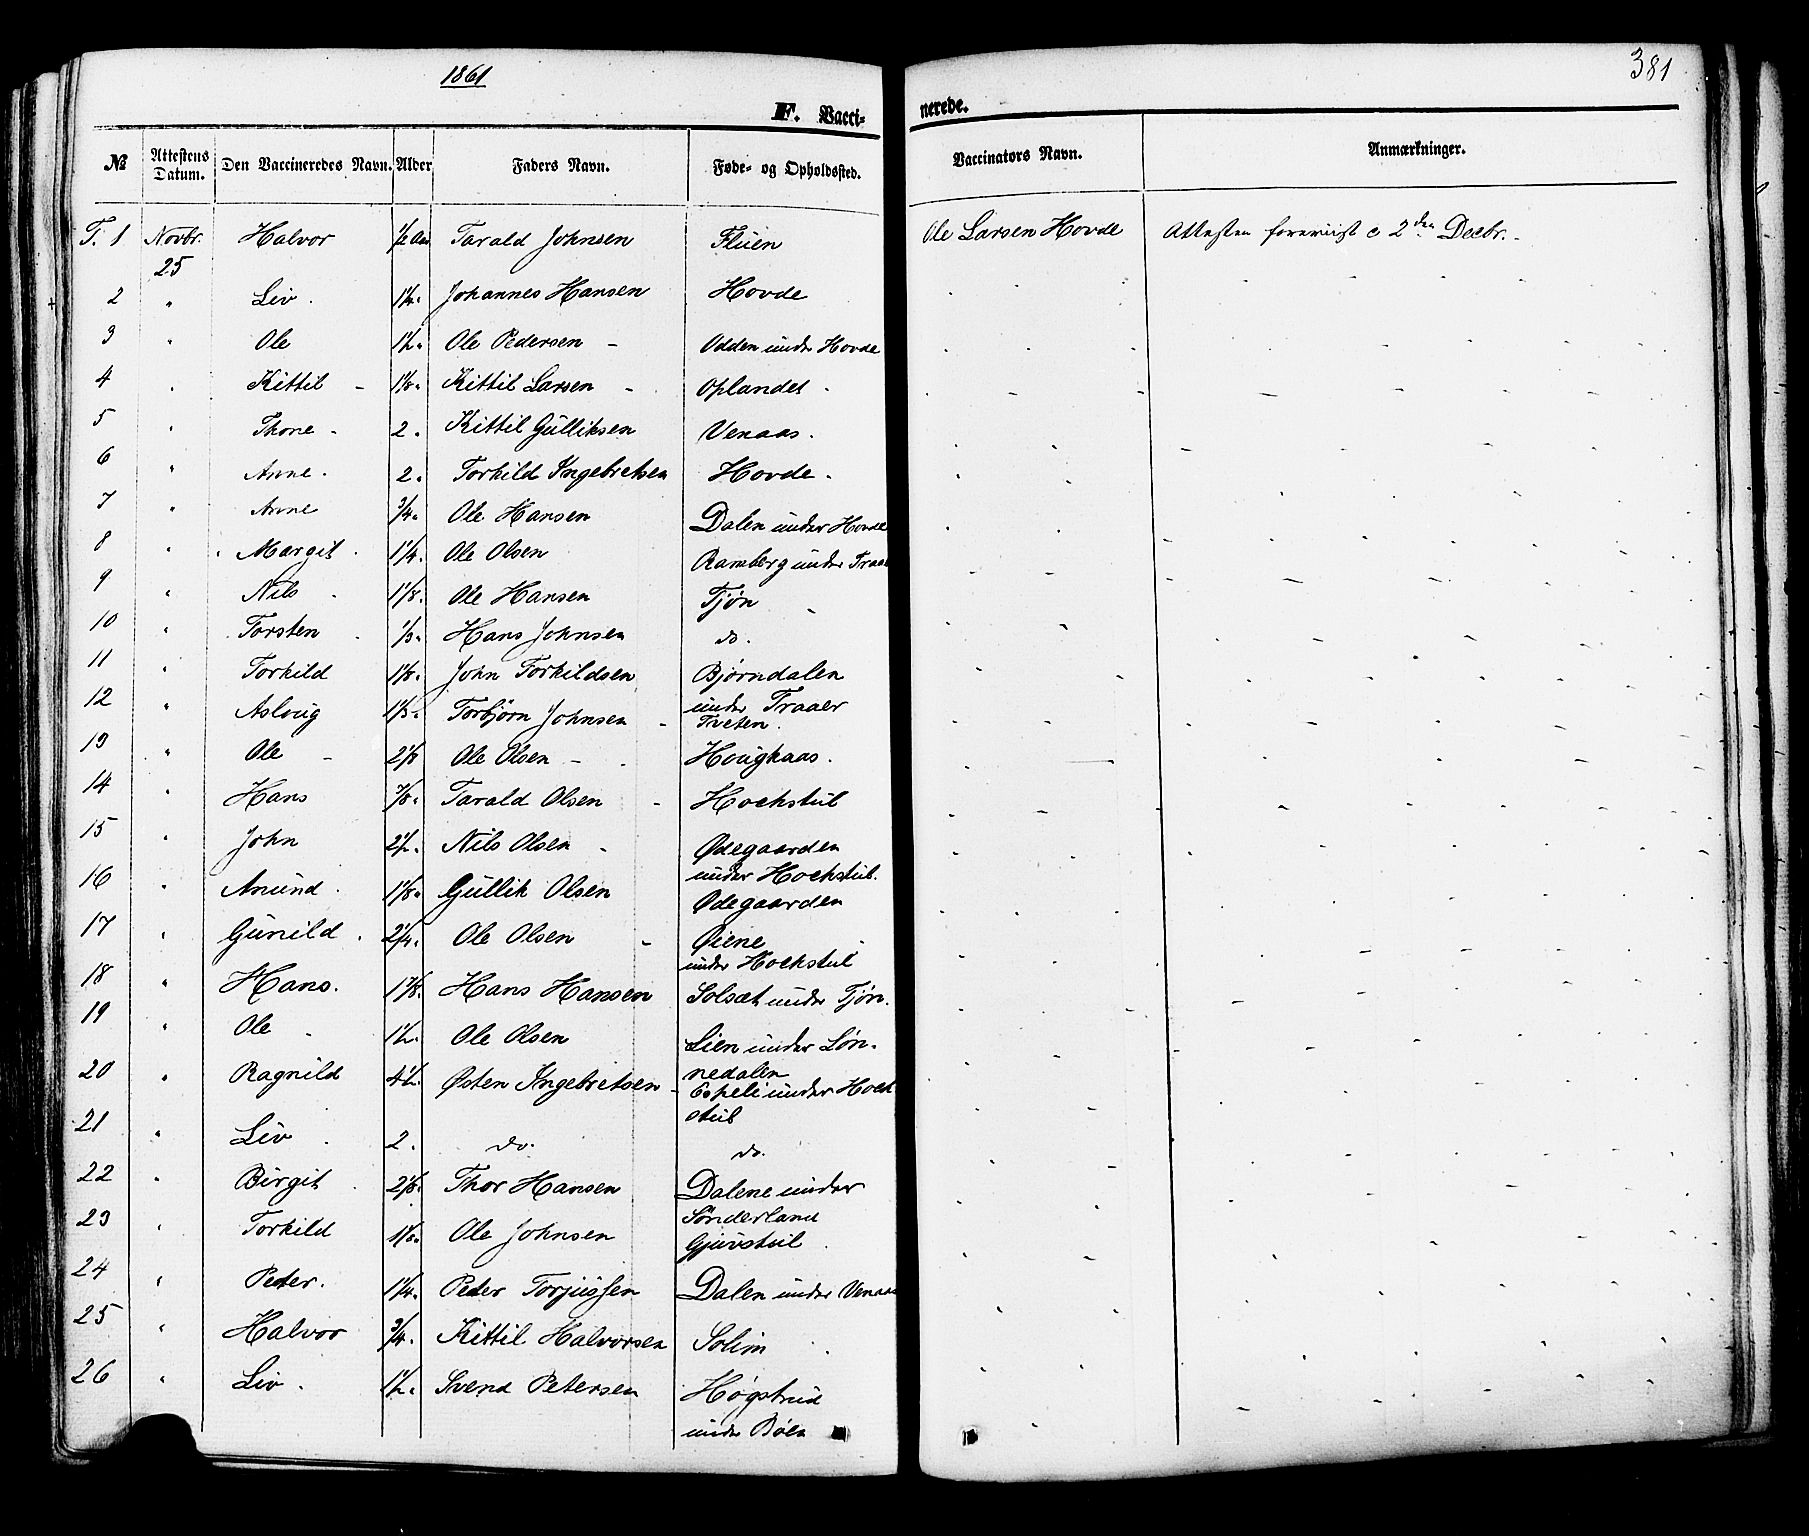 1861
381
F. Vacci-
nerede.
№ Attestens Datum. Den Vaccineredes Navn. Alder Faders Navn. Føde- og Opholdssted. Vaccinators Navn. Anmærkninger.
T. 1 Novbr. 25 Halvor 1/2 Aar Tarald Johnsen Fluen Ole Larsen Hovde Attesten foreviist d 2den Decbr.
2 " Liv 1 1/4 " Johannes Hansen Hovde
3 " Ole 1 1/2 " Ole Pedersen Odden under Hovde
4 " Kittil 1 1/8 " Kittil Larsen Oplandet
5 " Thone 2 " Kittil Gulliksen Venaas
6 " Anne 2 " Torkild Ingebretsen Hovde
7 " Anne 3/4 " Ole Hansen Dalen under Hovde
8 " Margit 1 1/4 " Ole Olsen Ramberg under Traa
9 " Nils 1 1/8 " Ole Hansen Tjøn
10 " Torsten 1/3 " Hans Johnsen do.
11 " Torkild 1 1/8 " John Torkildsen Bjørndalen
under Traaer
12 " Asloug 1 1/3 " Torbjørn Johnsen Tveten
13 " Ole 2 1/8 Ole Olsen Hougkaas
14 " Hans 7/8 " Tarald Olsen Hockstul
15 " John 2 1/2 " Nils Olsen Ødegaarden
under Hockstul
16 " Anund 1 1/8 " Gullik Olsen Ødegaarden
17 " Gunild 2 1/4 " Ole Olsen Øiene
under Hockstul
18 " Hans 1 7/8 " Hans Hansen Solsæt under Tjøn
19 " Ole 1 1/2 " Ole Olsen Lien under Løn-
nedalen
20 " Ragnild 4 1/2 " Østen Ingebretsen Espeli under Hock
stul
21 " Liv 2 " do. do.
22 " Birgit 2 1/8 " Thor Hansen Dalene under
Sønderland
23 " Torkild 1 1/8 " Ole Johnsen Gjuvstul
24 " Peter 1 1/4 " Peter Torjussen Dalen under Venaas
25 " Halvor 3/4 " Kittil Halvorsen Solim
26 " Liv 1 1/2 " Svend Petersen Høgstrud
under Bøen